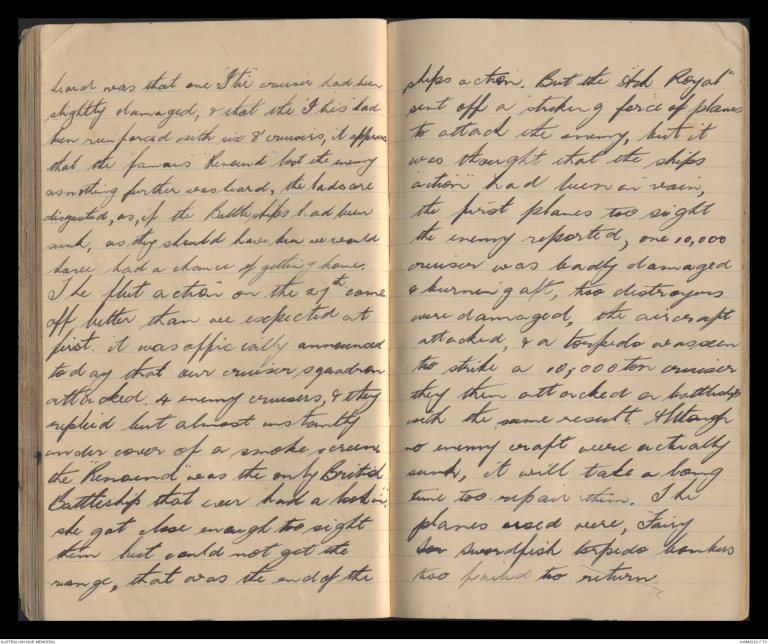 heard was that one "Itie" cruiser had been
slightly damaged, & that the "Ities" had
been reinforced with six 8" cruisers, it appears
that the famous "Renound" lost the enemy
as nothing further was heard, the lads are
disgusted, as, if the Battleships had been
sunk, as they should have been we would
have had a chance of getting home.
The fleet action on the 27th came
off, better than we expected at
first. it was officially announced
today that our cruiser squadron
attacked. 4 enemy cruisers, & they
replied but almost instantly
under cover of a smoke screen,
the "Renound" was the only British
Battleship that ever had a look in,
she got close enough to sight
them but could not get the
range, that was the end of the
ships action. But the "Ark Royal"
sent off a striking force of planes
to attack the enemy, but it
was thought that the ships
"action" had been in vain,
the first planes too sight
the enemy reported, one 10,000
cruiser was badly damaged
& burning aft, two distroyers
were damaged, the aircraft
attacked, & a torpedo was seen
too strike a 10,000 ton cruiser
they then attacked a battleship
with the same result. Although
no enemy craft were actually
sunk, it will take a long
time too repair them. The
planes used were, "Fairy
Swordfish torpedo bombers
two failed to return.
AUSTRALIAN WAR MEMORIAL